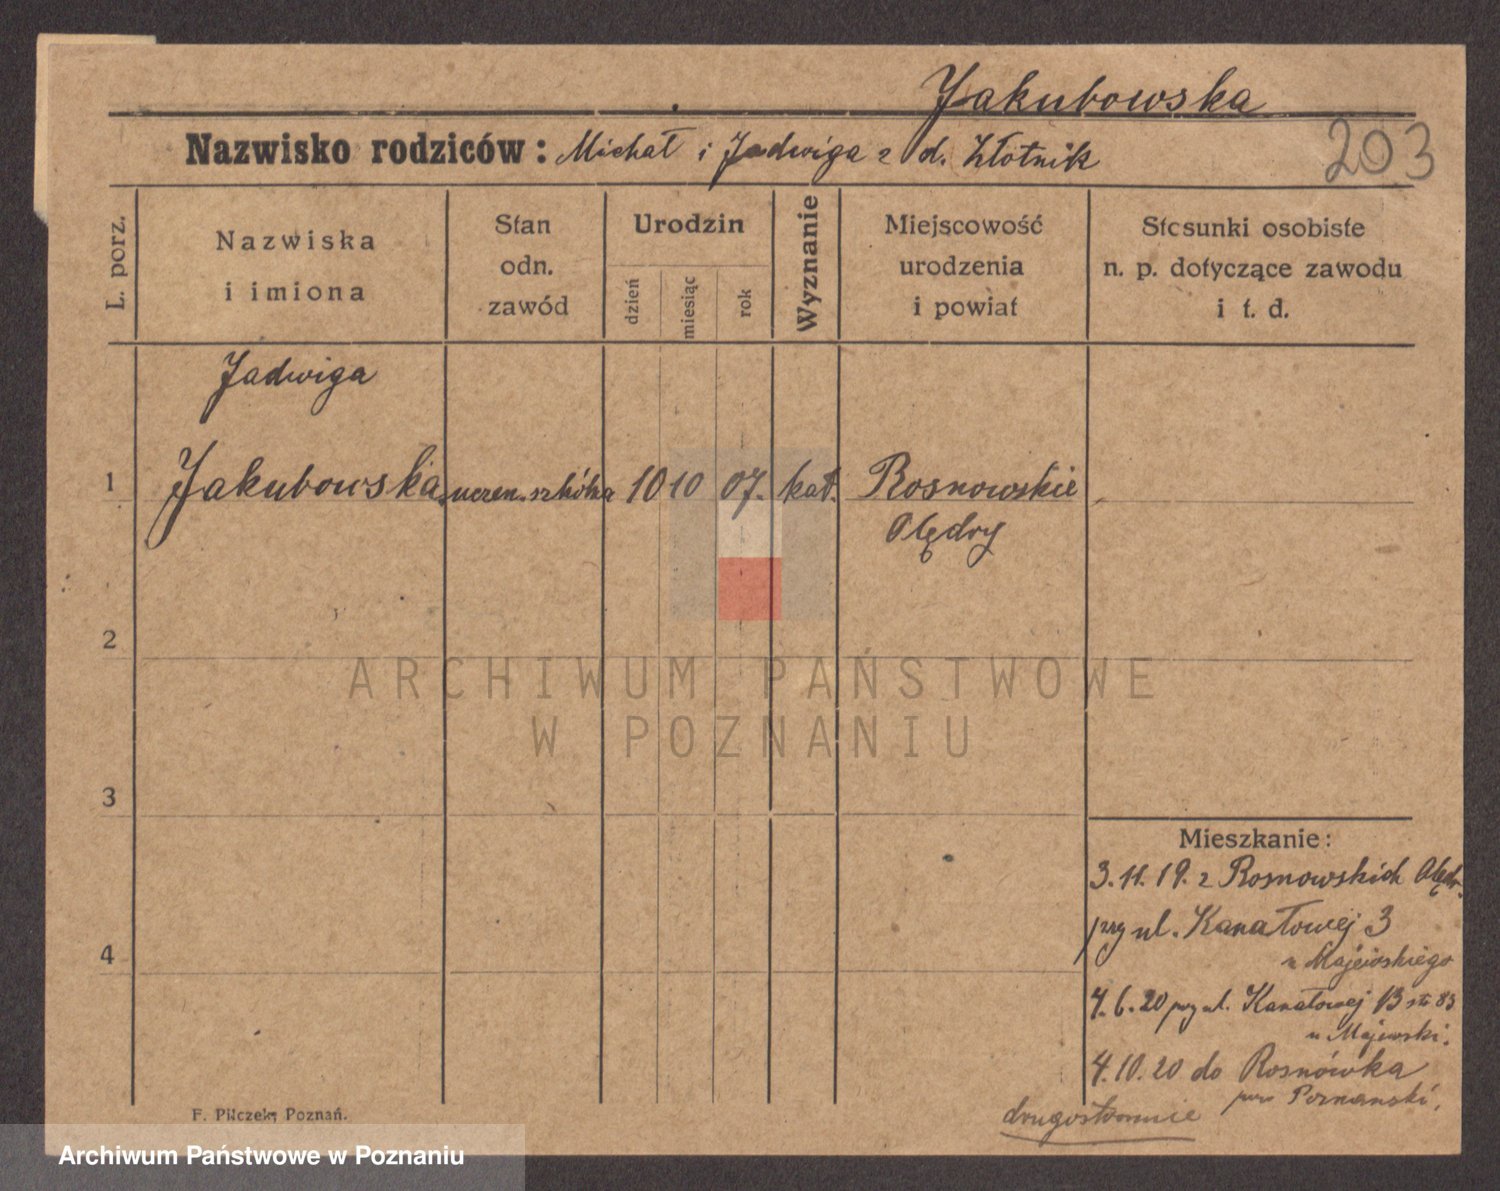 Jakubowska
203
Nazwisko rodziców: Michał i Jadwiga z d. Złotnik
L. porz.
Nazwiska
i imiona
Stan
odn.
zawód
Urodzin
dzień
miesiąc
rok
Wyznanie
Miejscowość
urodzenia
i powiat
Stosunki osobiste
n. p. dotyczące zawodu
i t. d.
Jadwiga
1 Jakubowska uczen. 10 10 07. kat. Rosnowskie
Olędry
2
3
4
ARCHIWUM PAŃSTWOWE
W POZNANIU
Mieszkanie:
3.11.19. z Rosnowskich Olędr.
przy ul. Kanałowej 3
u Majewskiego
4.6.20 przy ul. Kanałowej 13
u Majewski.
4.10.20 do Rosnówka
pow Poznański.
drugostronnie
F. Pilczek, Poznań.
Archiwum Państwowe w Poznaniu